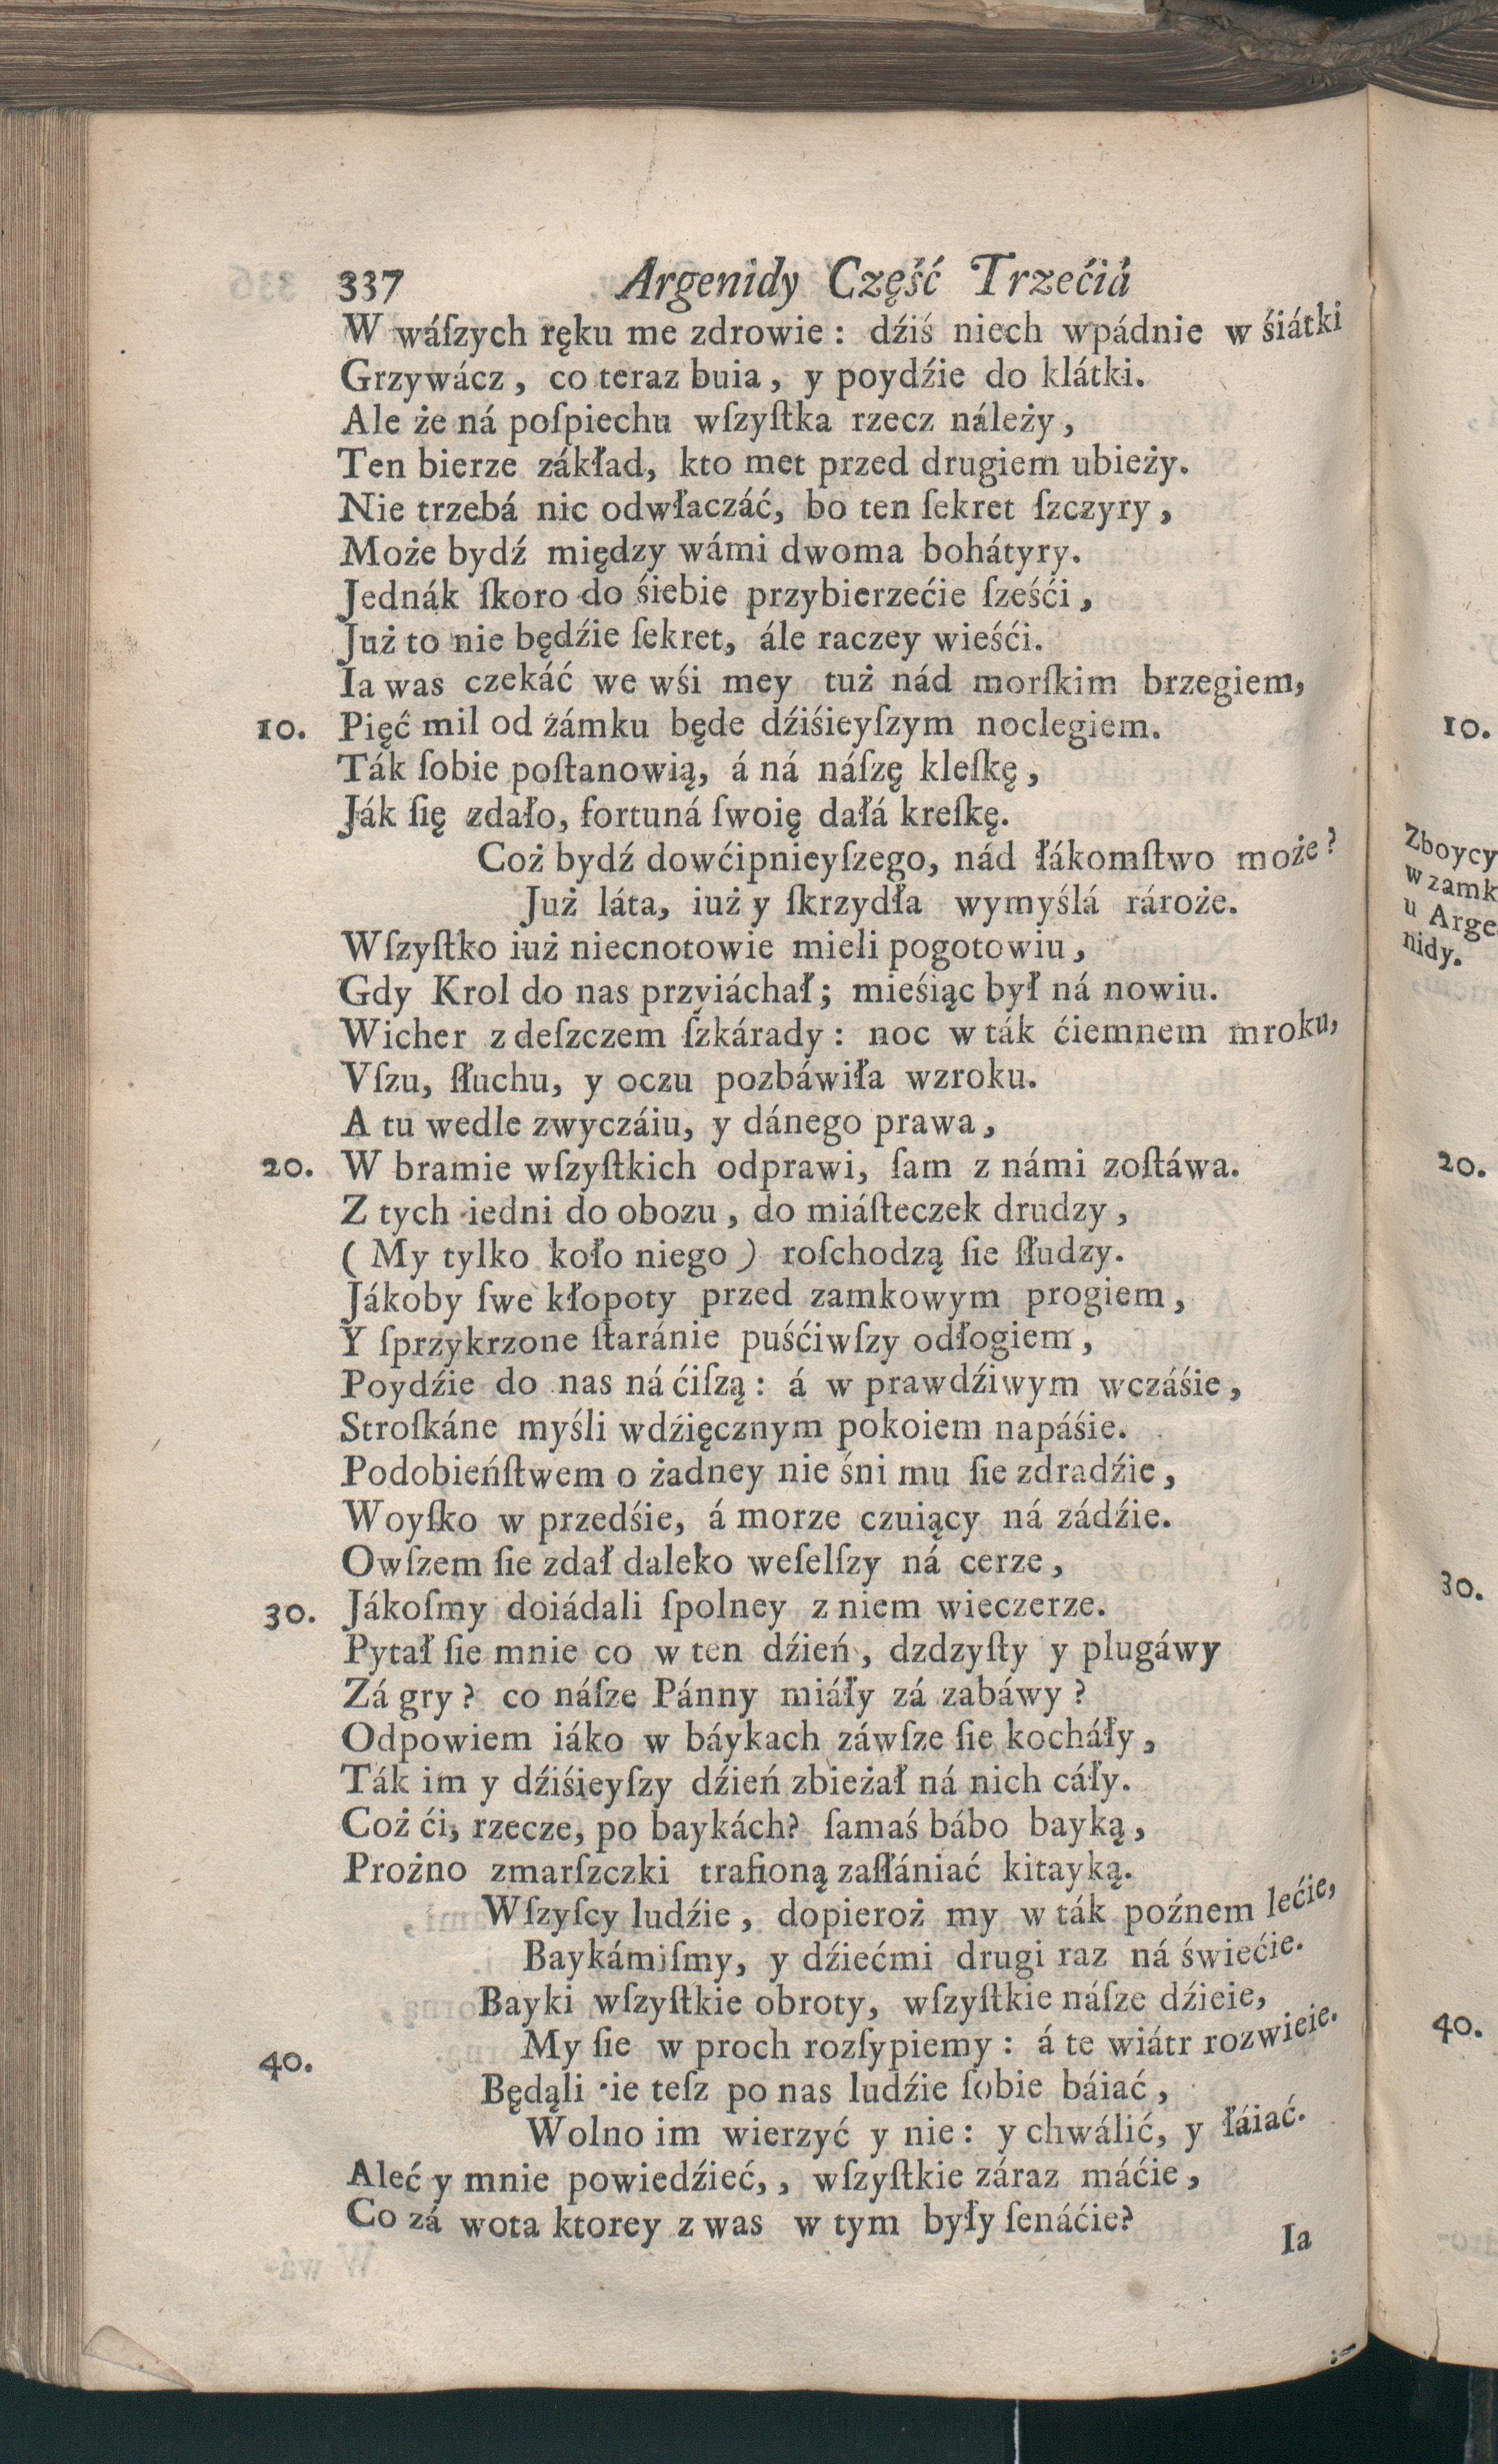 337 Argenidy Część Trzećiá
W wáſzych ręku me zdrowie : dźiś niech wpádnie w śiátki
Grzywácz, co teraz buia, y poydźie do klátki.
Ale że ná poſpiechu wſzyſtka rzecz náleży,
Ten bierze zákład, kto met przed drugiem ubieży.
Nie trzebá nic odwłaczáć, bo ten ſekret ſzczyry,
Może bydź między wámi dwoma bohátyry.
Jednák ſkoro do śiebie przybierzećie ſześći,
Już to nie będźie ſekret, ále raczey wieśći.
Ia was czekáć we wśi mey tuż nád morſkim brzegiem,
10. Pięć mil od żámku będe dźiśieyſzym noclegiem.
Ták ſobie poſtanowią, á ná náſzę kleſkę,
Ják ſię zdało, fortuná ſwoię dałá kreſkę.
Coż bydź dowćipnieyſzego, nád łákomſtwo może?
Już láta, iuż y ſkrzydła wymyślá rároże.
Wſzyſtko iuż niecnotowie mieli pogotowiu,
Gdy Krol do nas przyiáchał; mieśiąc był ná nowiu.
Wicher z deſzczem ſzkárady : noc w ták ćiemnem mroku,
Vſzu, ſłuchu, y oczu pozbáwiła wzroku.
A tu wedle zwyczáiu, y dánego prawa,
20. W bramie wſzyſtkich odprawi, ſam z námi zoſtáwa.
Z tych iedni do obozu, do miáſteczek drudzy,
( My tylko koło niego ) roſchodzą ſie ſłudzy.
Jákoby ſwe kłopoty przed zamkowym progiem,
Y ſprzykrzone ſtaránie puśćiwſzy odłogiem,
Poydźie do nas ná ćiſzą : á w prawdźiwym wczáśie,
Stroſkáne myśli wdźięcznym pokoiem napáśie.
Podobieńſtwem o żadney nie śni mu ſie zdradźie,
Woyſko w przedśie, á morze czuiący ná zádźie.
Owſzem ſie zdał daleko weſelſzy ná cerze,
30. Jákoſmy doiádali ſpolney z niem wieczerze.
Pytał ſie mnie co w ten dźień, dzdzyſty y plugáwy
Zá gry? co náſze Pánny miáły zá zabáwy?
Odpowiem iáko w báykach záwſze ſie kocháły,
Ták im y dźiśieyſzy dźień zbieżał ná nich cáły.
Coż ći, rzecze, po baykách? ſamaś bábo bayką,
Prożno zmarſzczki trafioną zaſłániać kitayką.
Wſzyſcy ludźie, dopieroż my w ták poźnem lećie,
Baykámiſmy, y dźiećmi drugi raz ná świećie.
Bayki wſzyſtkie obroty, wſzyſtkie náſze dźieie,
40. My ſie w proch rozſypiemy : á te wiátr rozwieie.
Będąli ie teſz po nas ludźie ſobie báiać,
Wolno im wierzyć y nie : y chwálić, y łáiać.
Aleć y mnie powiedźieć, , wſzyſtkie záraz máćie,
Co zá wota ktorey z was w tym były ſenáćie?
Ia
10.
Zboycy
w zamk
u Arge
nidy.
20.
30.
40.